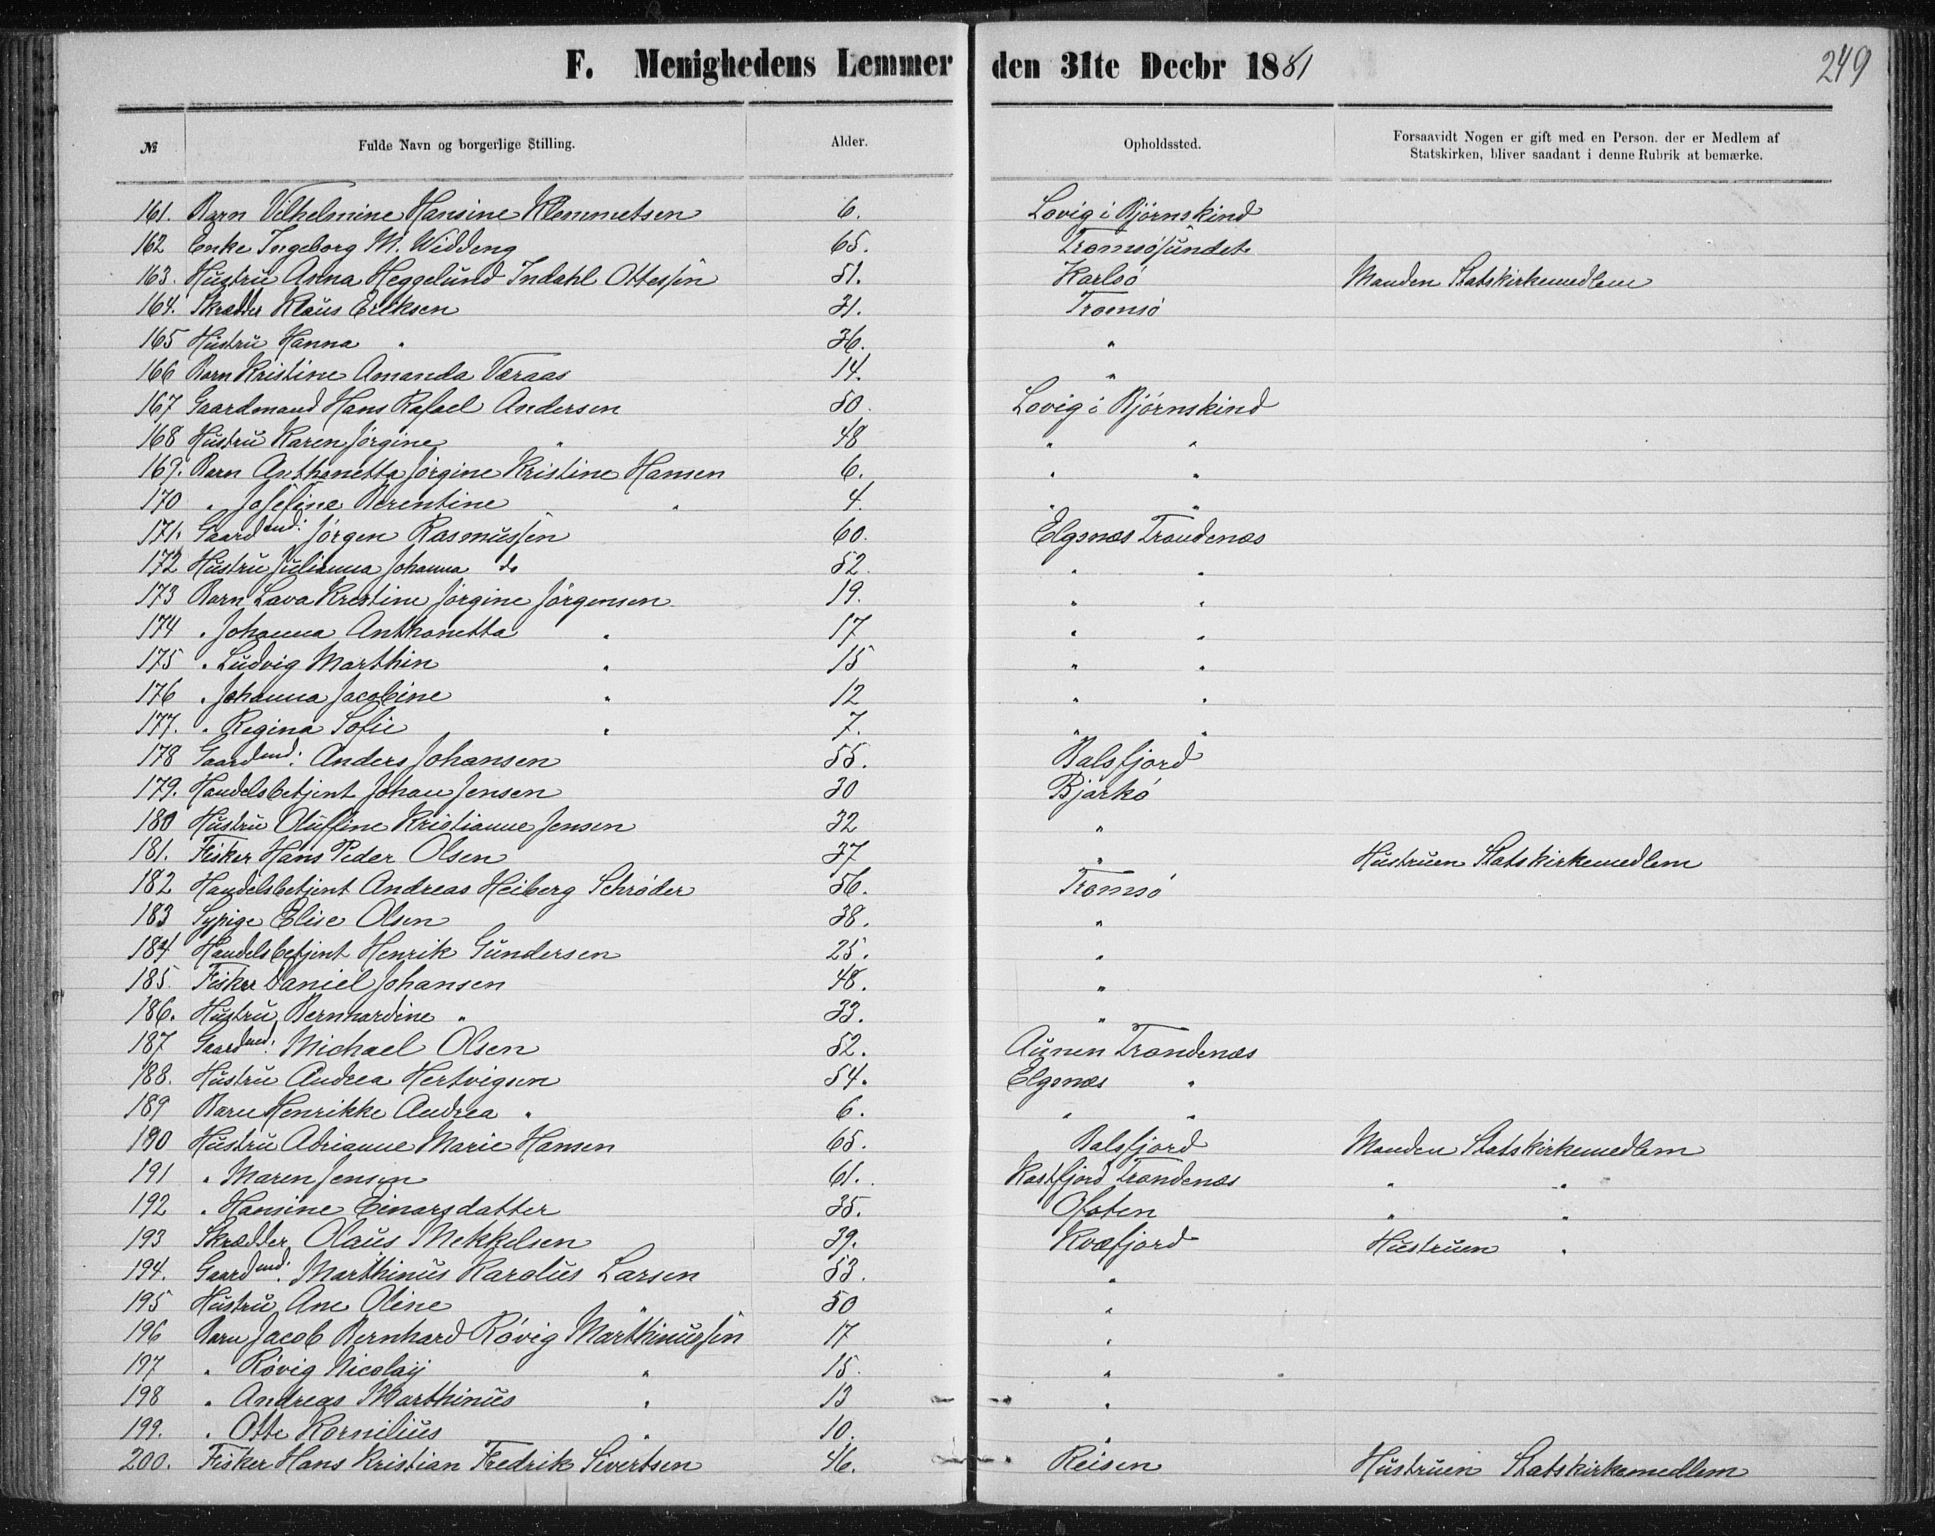 F. Menighedens Lemmer den 31te Decbr 1881
249
№ Fulde Navn og borgerlige Stilling. Alder. Opholdssted. Forsaavidt Nogen er gift med en Person, der er Medlem af
Statskirken, bliver saadant i denne Rubrik at bemærke.
161. Barn Vilhelmine Hansine Klemmetsen 6. Lovig i Bjørnskind
162 Enke Ingeborg M. Widding 65. Tromsøsundet
163. Hustru Anna Heggelund Indahl Ottessen 51. Karlsø Manden Statskirkemedlem
164. Skrædder Klaus Eriksen 31. Tromsø
165 Hustru Hanna " 36. "
166 Barn Kristine Amanda Væraas 14. "
167 Gaardmand Hans Rafael Andersen 50. Lovig i Bjørnskind
168 Hustru Karen Jørgine " 48 " "
169. Barn Anthonetta Jørgine Kristine Hansen 6. " "
170 " Josefine Berentine " 4. " "
171. Gaardmd: Jørgen Rasmussen 60. Elgsnæs Trondenæs
172 Hustru Julianna Johanna do 52. " "
173 Barn Lava Kristine Jørgine Jørgensen 19. " "
174 " Johanna Anthonetta " 17 " "
175 " Ludvig Marthin " 15 " "
176 " Johanna Jacobine " 12 " "
177. " Regina Sofie " 7. " "
178 Gaardmd: Anders Johansen 55. Balsfjord
179. Handelsbetjent Johan Jensen 30 Bjarkø
180 Hustru Oluffine Kristianne Jensen 32 "
181. Fisker Hans Peder Olsen 37 " Hustruen Statskirkemedlem
182 Handelsbetjent Andreas Heiberg Schrøder 56. Tromsø
183 Sypige Elise Olsen 38. "
184 Handelsbetjent Henrik Gundersen 25. "
185. Fisker Daniel Johansen 48. "
186. Hustru Bernhardine " 33. "
187 Gaardmd: Michael Olsen 52. Aunen Trondenæs
188. Hustru Andrea Hertvigsen 54. Elgsnæs "
189 Barn Henrikke Andrea " 6. " "
190 Hustru Adrianne Marie Hansen 65. Balsfjord Manden Statskirkemedlem
191 " Maren Jensen 61. Kastfjord Trondenæs " "
192 " Hansine Einarsdatter 35. Ofoten " "
193 Skrædder Olaus Mekkelsen 39. Kvæfjord Hustruen "
194. Gaardmd: Marthinus Karolus Larsen 53. "
195 Hustru Ane Oline " 50 "
196 Barn Jacob Bernhard Røvig Marthinussen 17 "
197 " Røvig Nicolaij " 15. "
198 " Andreas Marthinus " 13 "
199. " Otte Kornilius " 10. "
200. Fisker Hans Kristian Fredrik Sivertsen 46. Reisen Hustruen Statskirkemedlem